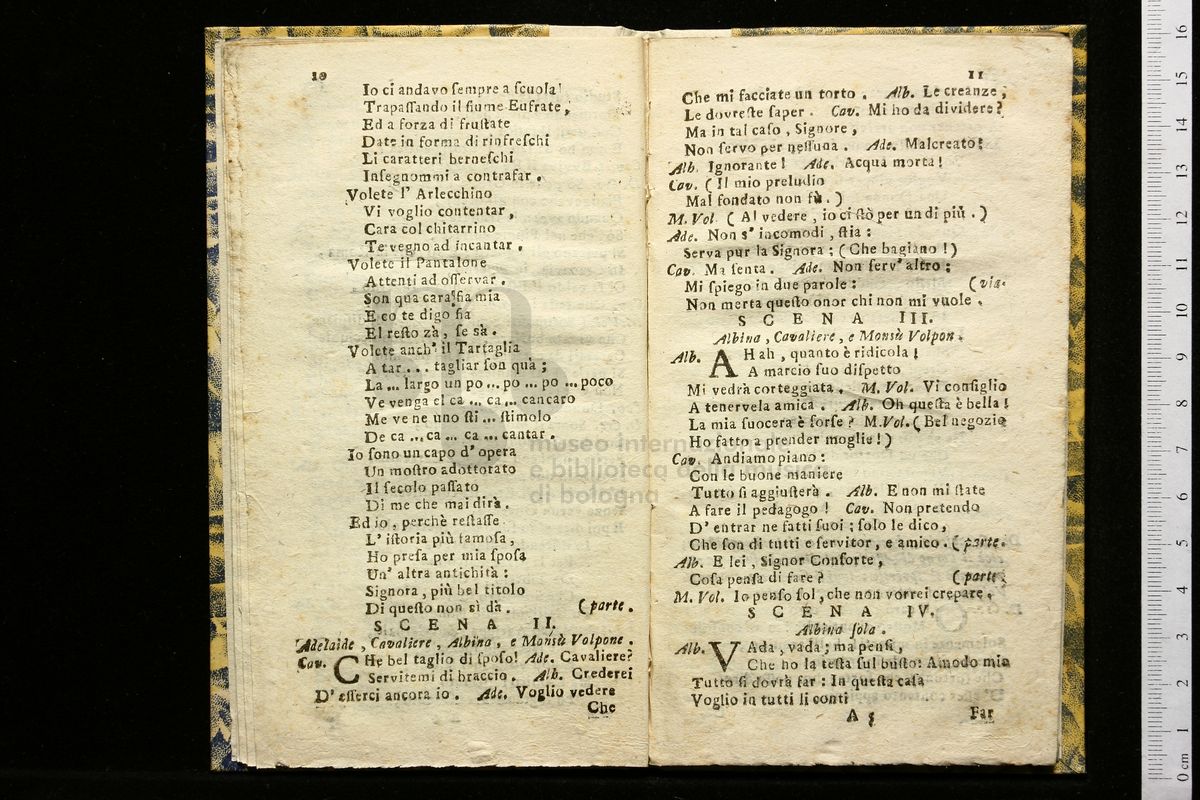 10
Io ci andavo ſempre a ſcuola!
Trapaſſando il fiume Eufrate,
Ed a forza di fruſtate
Date in forma di rinfreſchi
Li caratteri berneſchi
Inſegnommi a contrafar.
Volete l' Arlecchino
Vi voglio contentar,
Cara col chitarrino
Te vegno ad incantar.
Volete il Pantalone
Attenti ad oſſervar.
Son qua cara fia mia
E co te digo fia
El reſto zà, ſe sà.
Volete anch' il Tartaglia
A tar... tagliar ſon quà;
La... largo un po... po... po... poco
Ve venga el ca... ca... cancaro
Me ve ne uno ſti... ſtimolo
De ca... ca... ca... cantar.
Io ſono un capo d' opera
Un moſtro adottorato
Il ſecolo paſſato
Di me che mai dirà.
Ed io, perchè reſtaſſe
L' iſtoria più famoſa,
Ho preſa per mia ſpoſa
Un' altra antichità:
Signora, più bel titolo
Di queſto non sì dà. (parte.
SCENA II.
Adelaide, Cavaliere, Albina, e Monsù Volpone.
Cav. CHe bel taglio di ſpoſo! Ade. Cavaliere?
Servitemi di braccio. Alb. Crederei
D' eſſerci ancora io. Ade. Voglio vedere
Che
11
Che mi facciate un torto. Alb. Le creanze,
Le dovreſte ſaper. Cav. Mi ho da dividere?
Ma in tal caſo, Signore,
Non ſervo per neſſuna. Ade. Malcreato!
Alb. Ignorante! Ade. Acqua morta!
Cav. (Il mio preludio
Mal fondato non fù.)
M. Vol. (Al vedere, io ci ſtò per un di più.)
Ade. Non s' incomodi, ſtia:
Serva pur la Signora; (Che bagiano!)
Cav. Ma ſenta. Ade. Non ſerv' altro:
Mi ſpiego in due parole: (via.
Non merta queſto onor chi non mi vuole.
SCENA III.
Albina, Cavaliere, e Monsù Volpon.
Alb. AHah, quanto è ridicola!
A marcio ſuo diſpetto
Mi vedrà corteggiata. M. Vol. Vi conſiglio
A tenervela amica. Alb. Oh queſta è bella!
La mia ſuocera è forſe? M. Vol. (Bel negozio
Ho fatto a prender moglie!)
Cav. Andiamo piano:
Con le buone maniere
Tutto ſi aggiuſterà. Alb. E non mi ſtate
A fare il pedagogo! Cav. Non pretendo
D' entrar ne fatti ſuoi; ſolo le dico,
Che ſon di tutti e ſervitor, e amico. (parte.
Alb. E lei, Signor Conſorte,
Coſa penſa di fare? (parte.
M. Vol. Io penſo ſol, che non vorrei crepare.
SCENA IV.
Albina ſola.
Alb. VAda, vada; ma penſi,
Che ho la teſta ſul buſto: A modo mio
Tutto ſi dovrà far: In queſta caſa
Voglio in tutti li conti
A 5 Far
museo
e biblioteca della musica
di bologna
0 cm 1 2 3 4 5 6 7 8 9 10 11 12 13 14 15 16